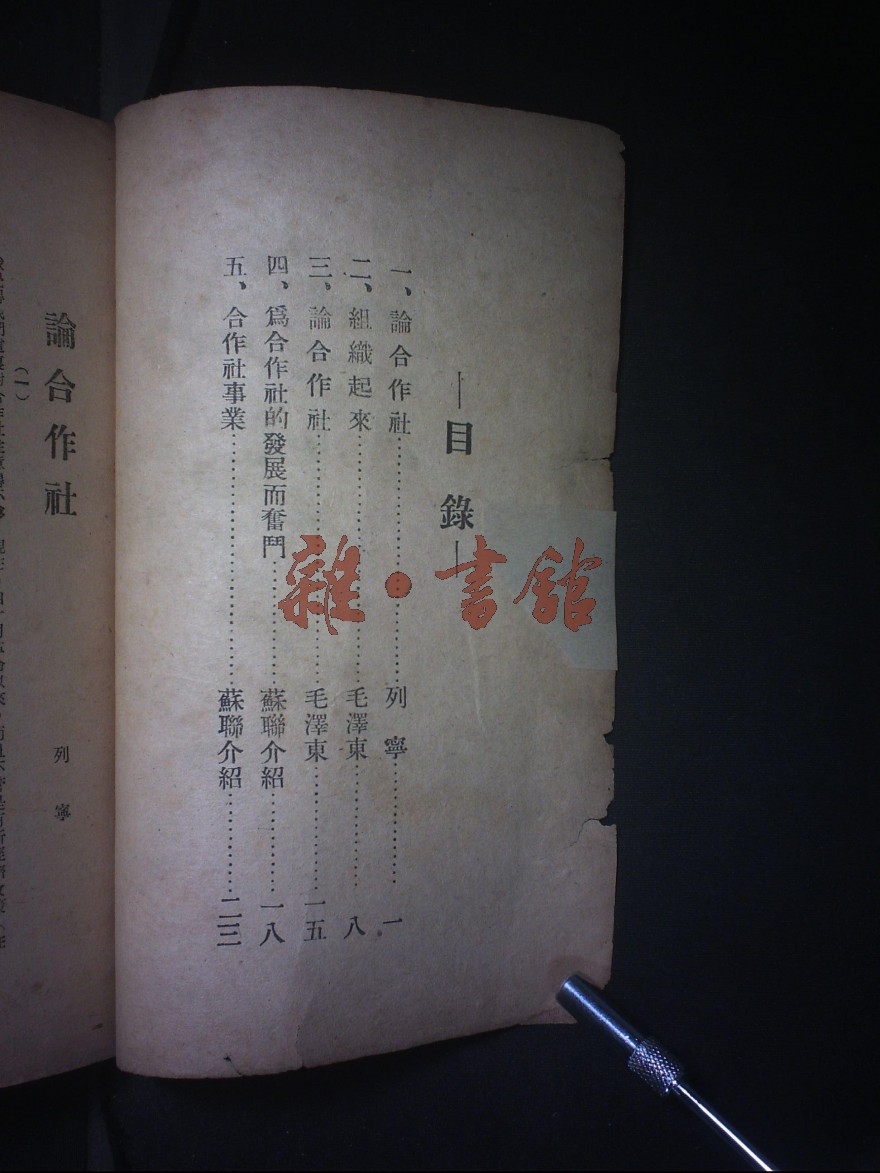 —目錄—
一、論合作社……列寧……一
二、組織起來……毛澤東……八
三、論合作社……毛澤東……一五
四、爲合作社的發展而奮鬥……蘇聯介紹……一八
五、合作社事業……蘇聯介紹……二三
雜·書館
論合作社
列寧
(一)